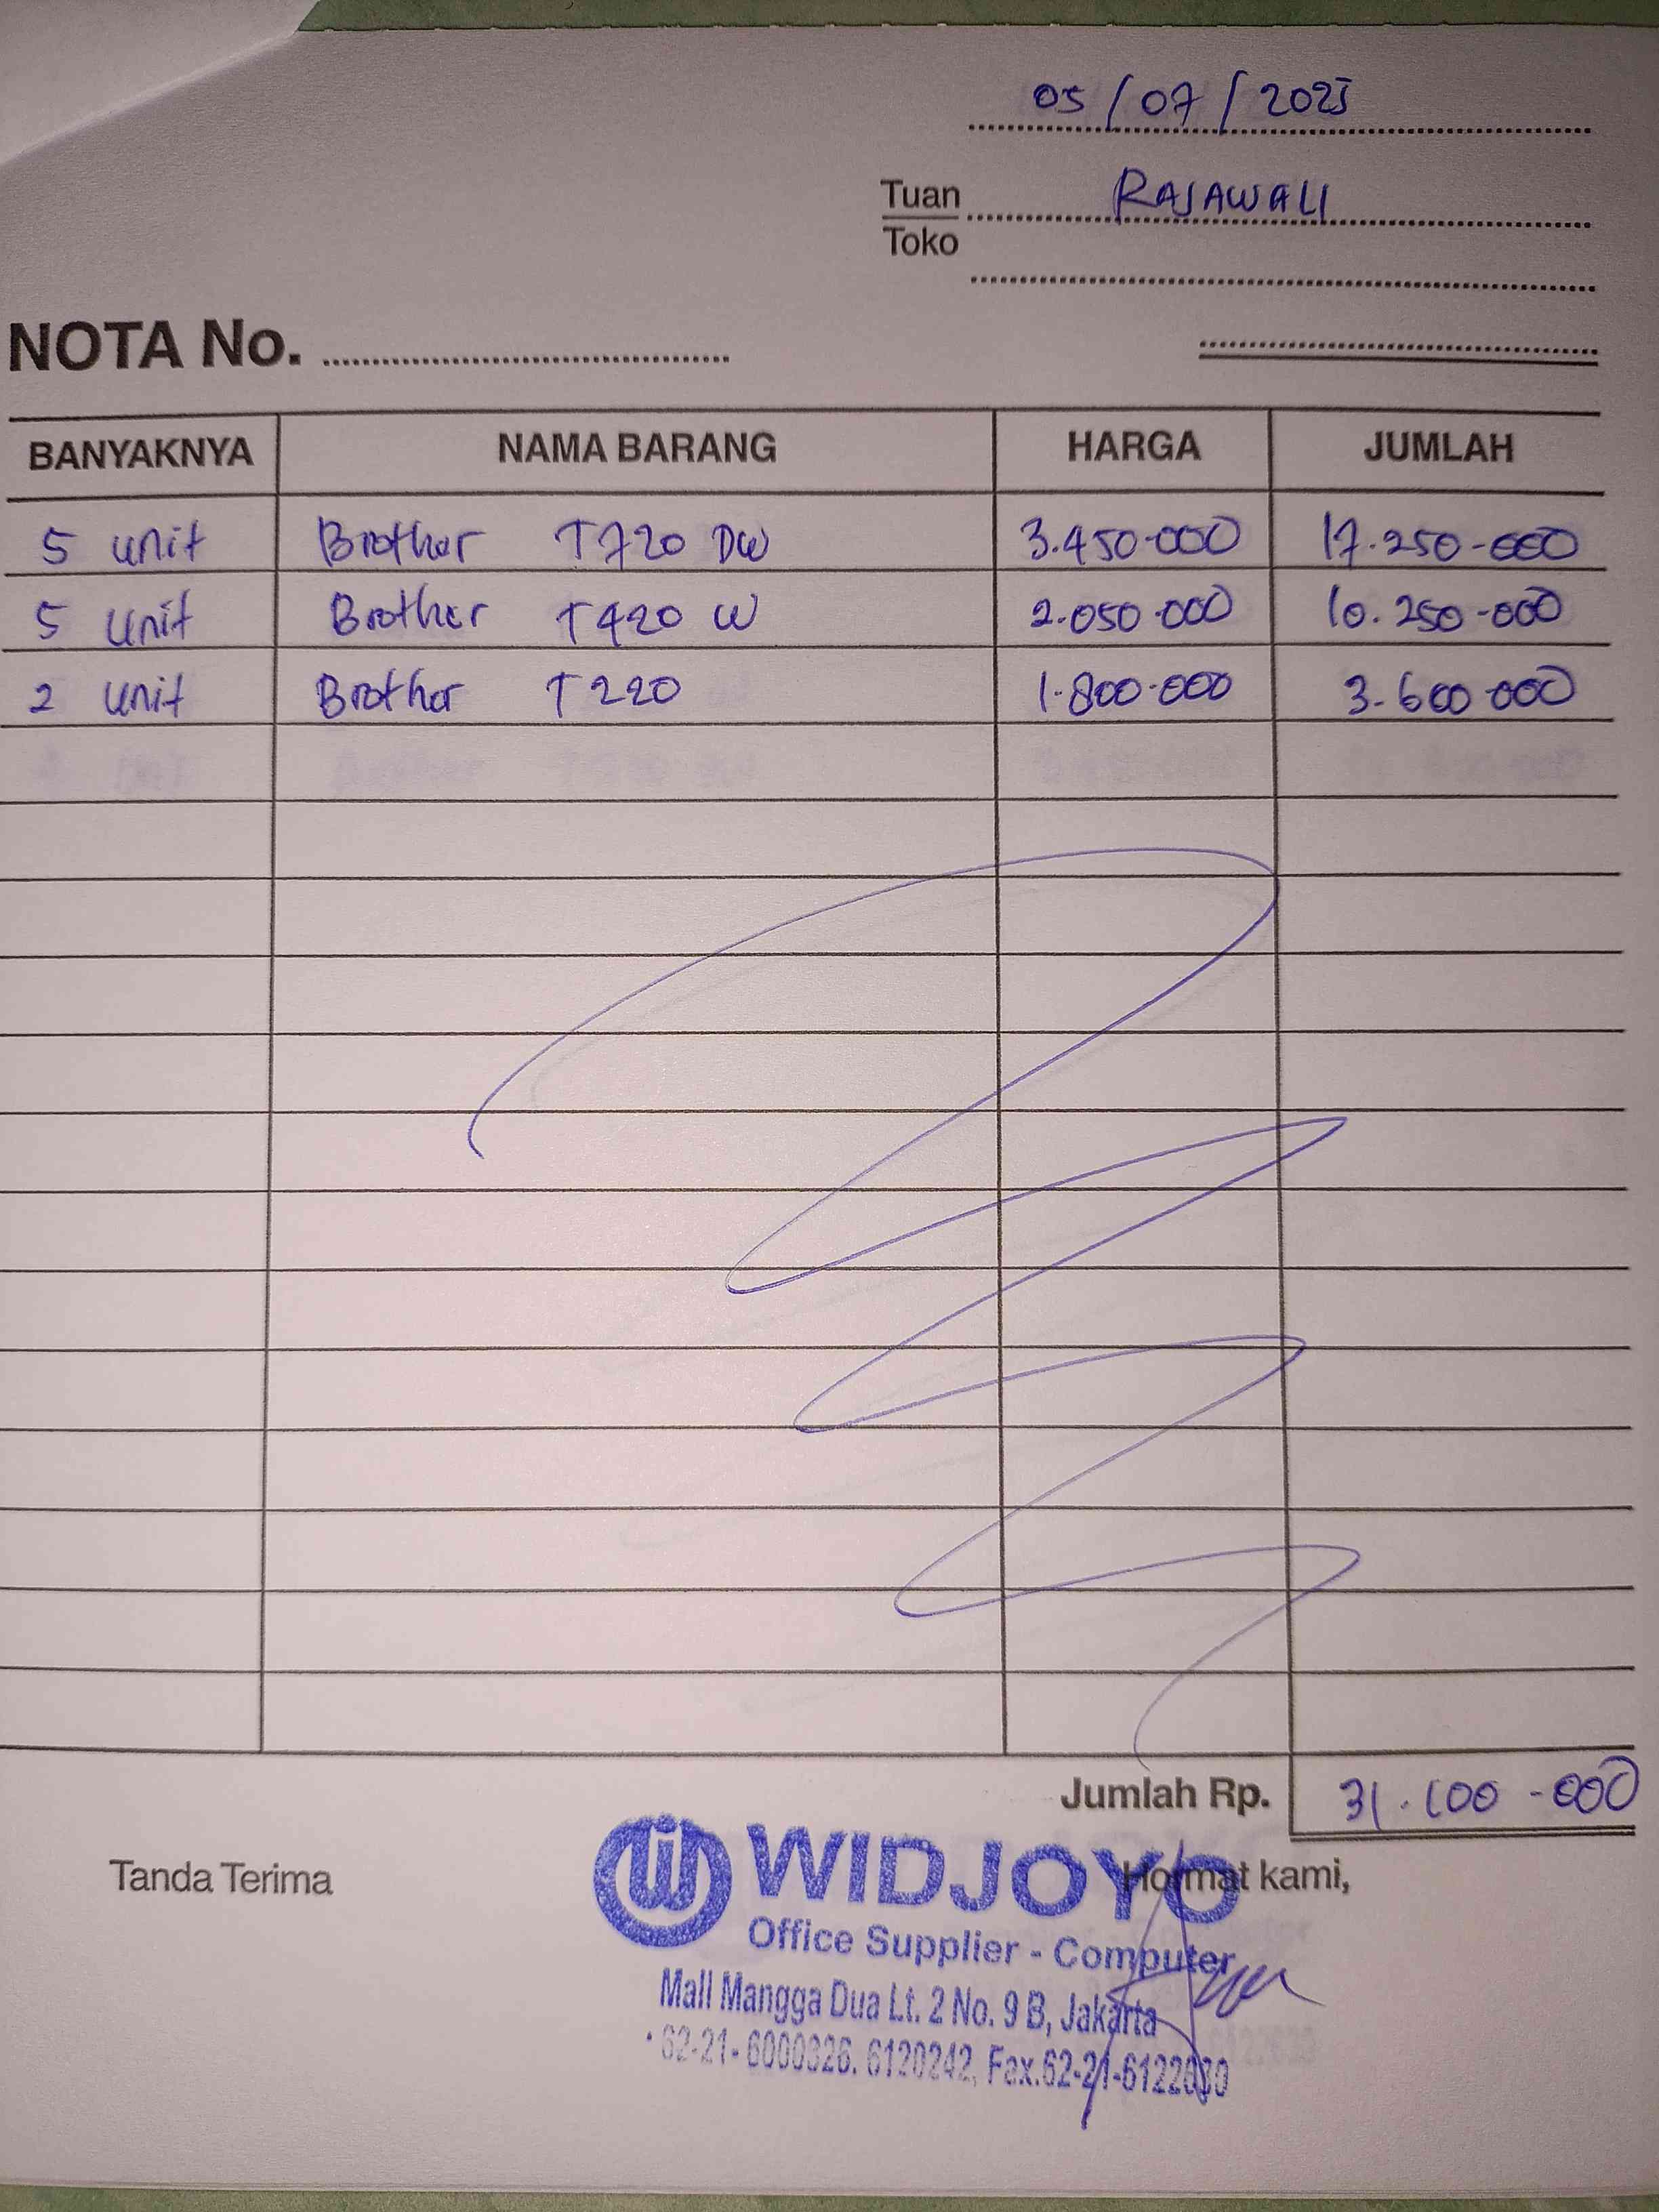 05/07/2025
Tuan RAJAWALI
Toko
NOTA No.
BANYAKNYA NAMA BARANG HARGA JUMLAH
5 unit Brother T720 DW 3.450.000 17.250.000
5 unit Brother T420 W 2.050.000 10.250.000
2 unit Brother T220 1.800.000 3.600.000
Jumlah Rp. 31.100.000
Tanda Terima Hormat kami,
WIDJOYO
Office Supplier - Computer
Mall Mangga Dua Lt. 2 No. 9 B, Jakarta
62-21- 6000326. 6120242, Fax.62-21-6122630